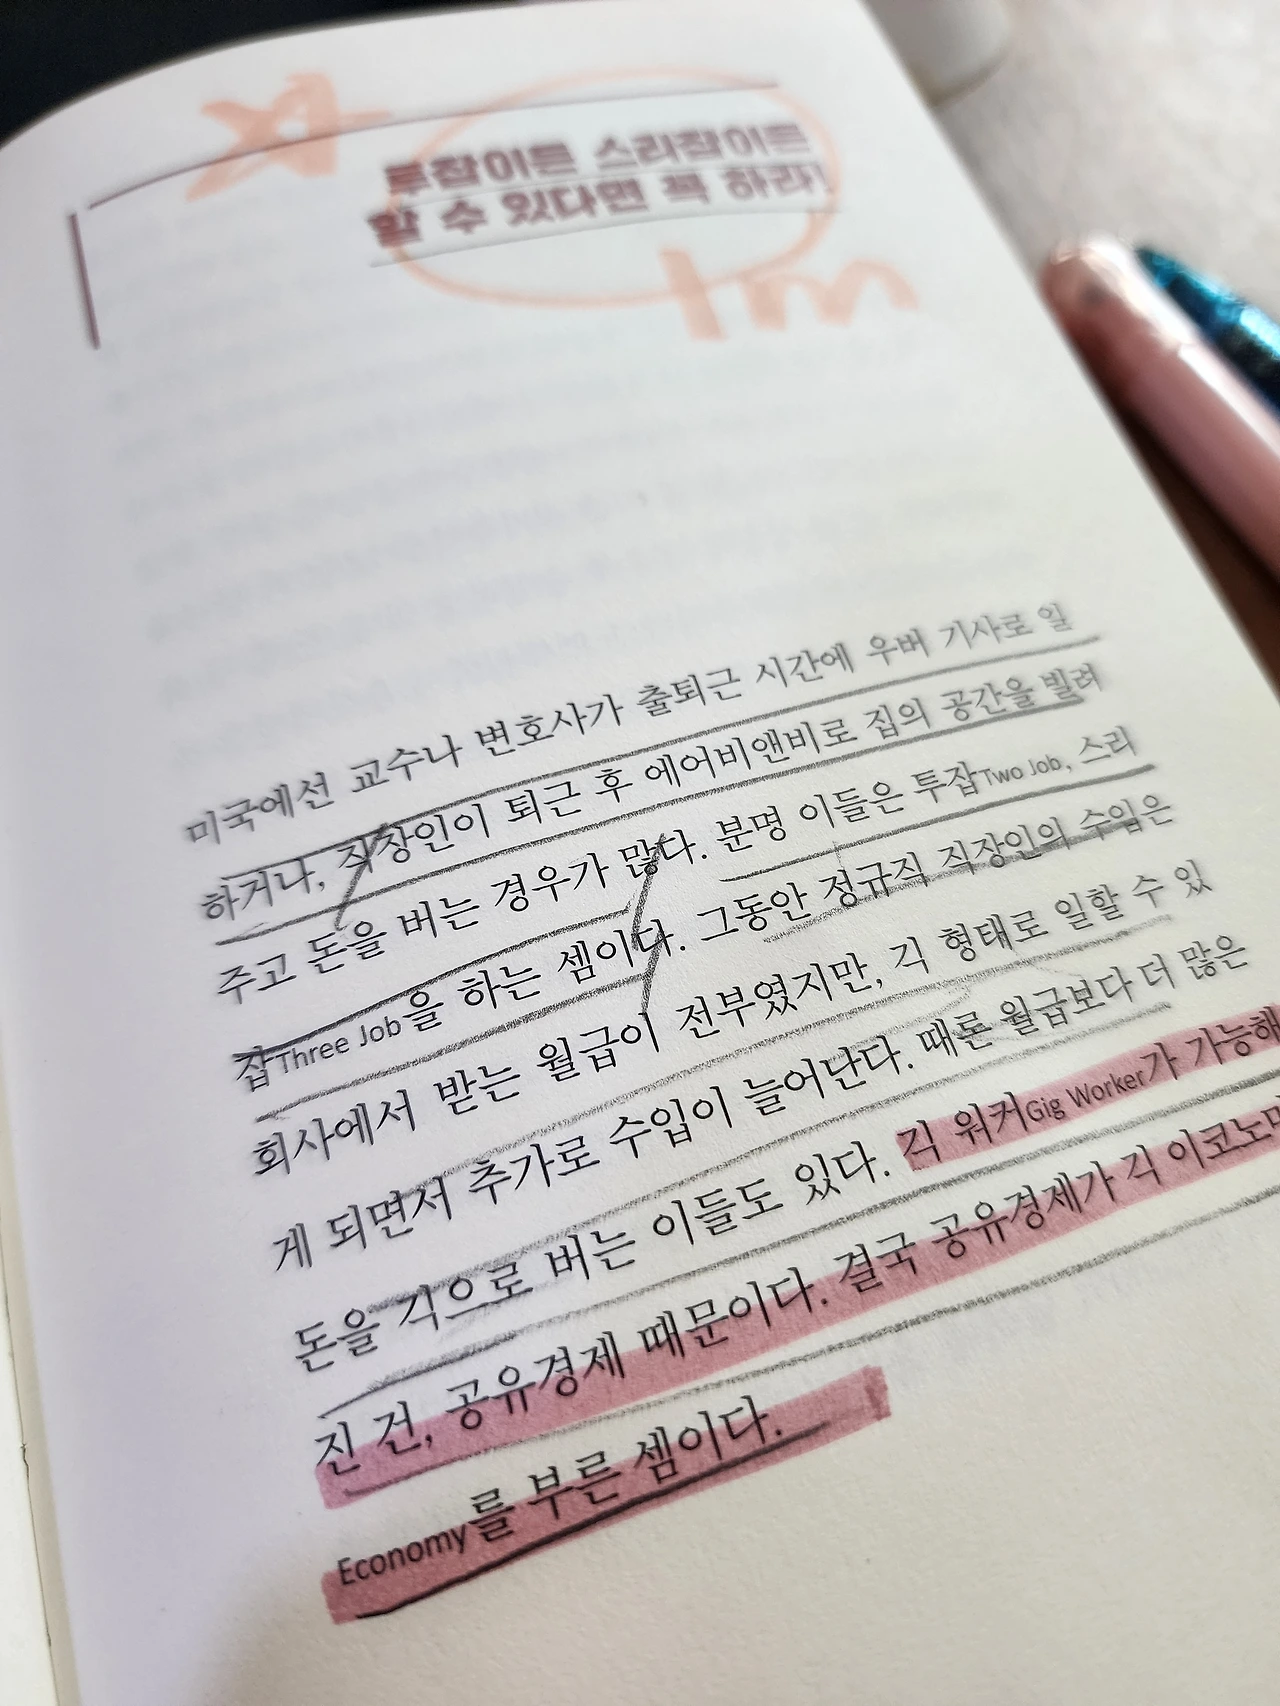 투잡이든 스리잡이든
할 수 있다면 꼭 하라!
1m
미국에선 교수나 변호사가 출퇴근 시간에 우버 기사로 일
하거나, 직장인이 퇴근 후 에어비앤비로 집의 공간을 빌려
주고 돈을 버는 경우가 많다. 분명 이들은 투잡Two Job, 스리
잡Three Job을 하는 셈이다. 그동안 정규직 직장인의 수입은
회사에서 받는 월급이 전부였지만, 긱 형태로 일할 수 있
게 되면서 추가로 수입이 늘어난다. 때론 월급보다 더 많은
돈을 긱으로 버는 이들도 있다. 긱 워커Gig Worker가 가능해
진 건, 공유경제 때문이다. 결국 공유경제가 긱 이코노미
Economy를 부른 셈이다.